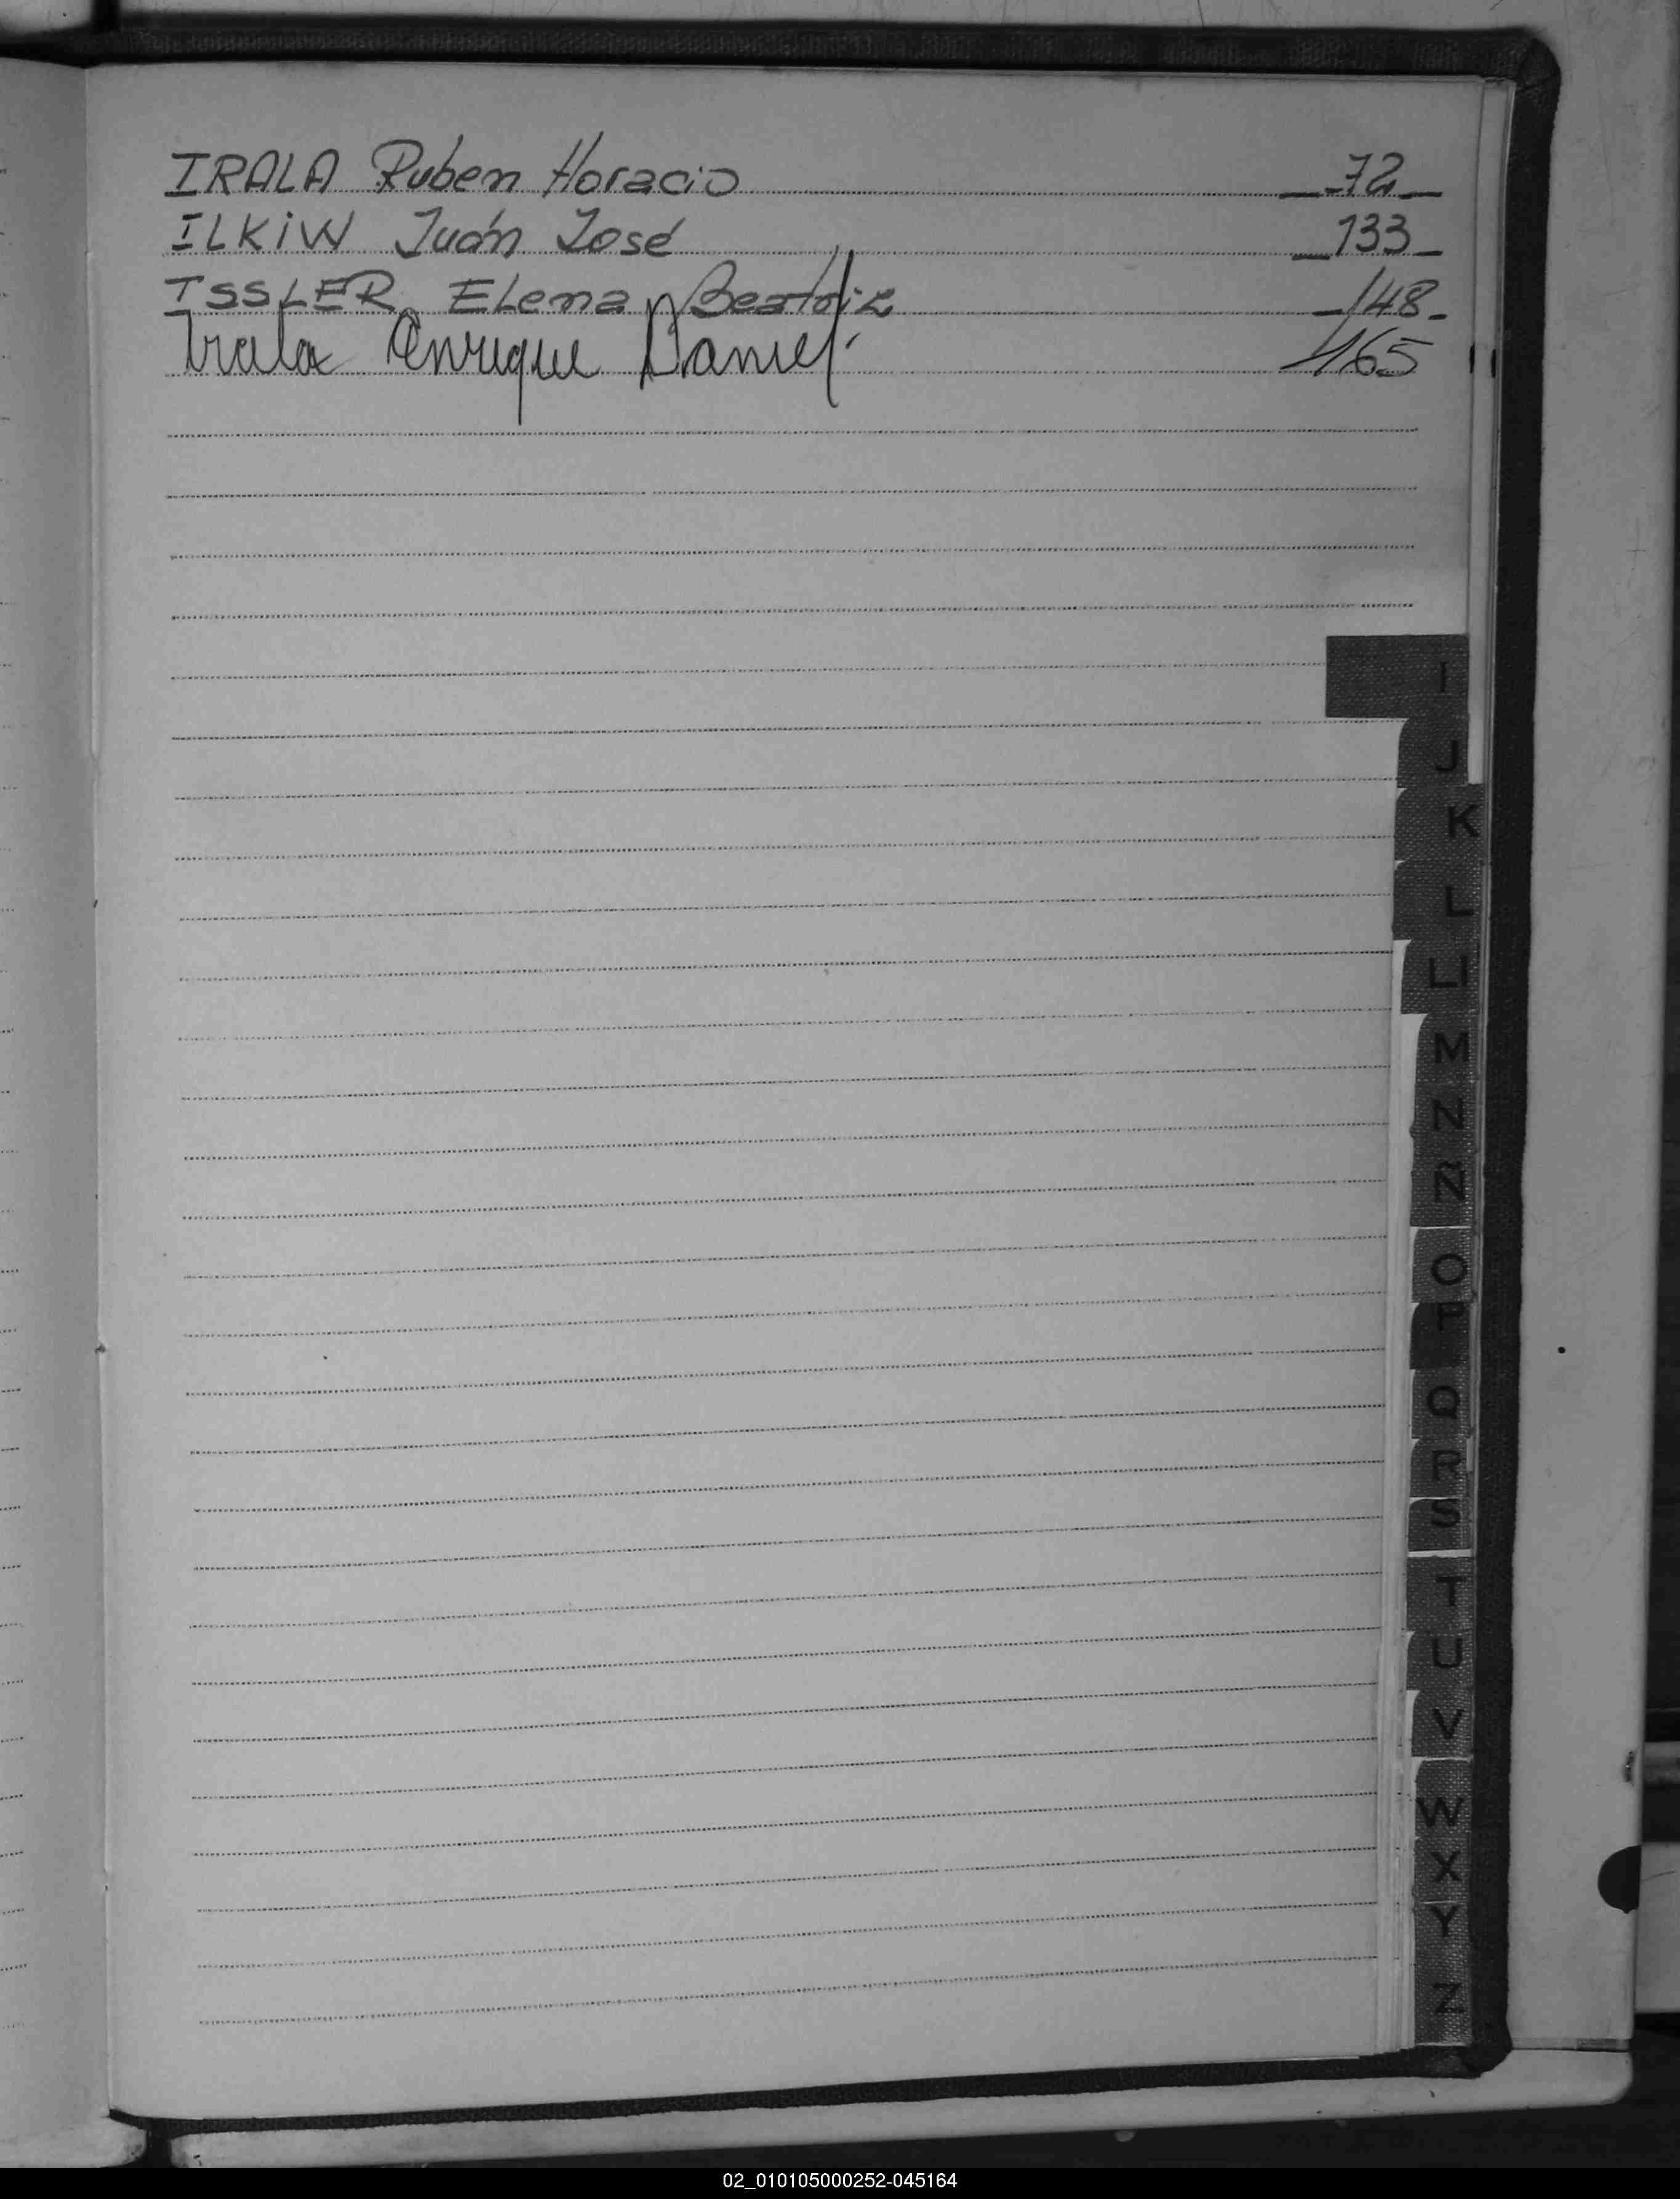 IRALA Ruben Horacio 72
ILKiW Juán José 133
ISSLER Elena Beatriz 148
Irala Enrique Daniel 165
I
J
K
L
Ll
M
N
Ñ
O
P
Q
R
S
T
U
V
W
X
Y
Z
02_010105000252-045164